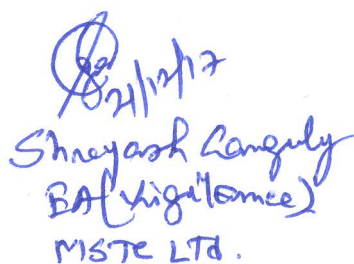 21/12/17
Shreyash Ganguly
EA(Vigilance)
MSTC LTd.